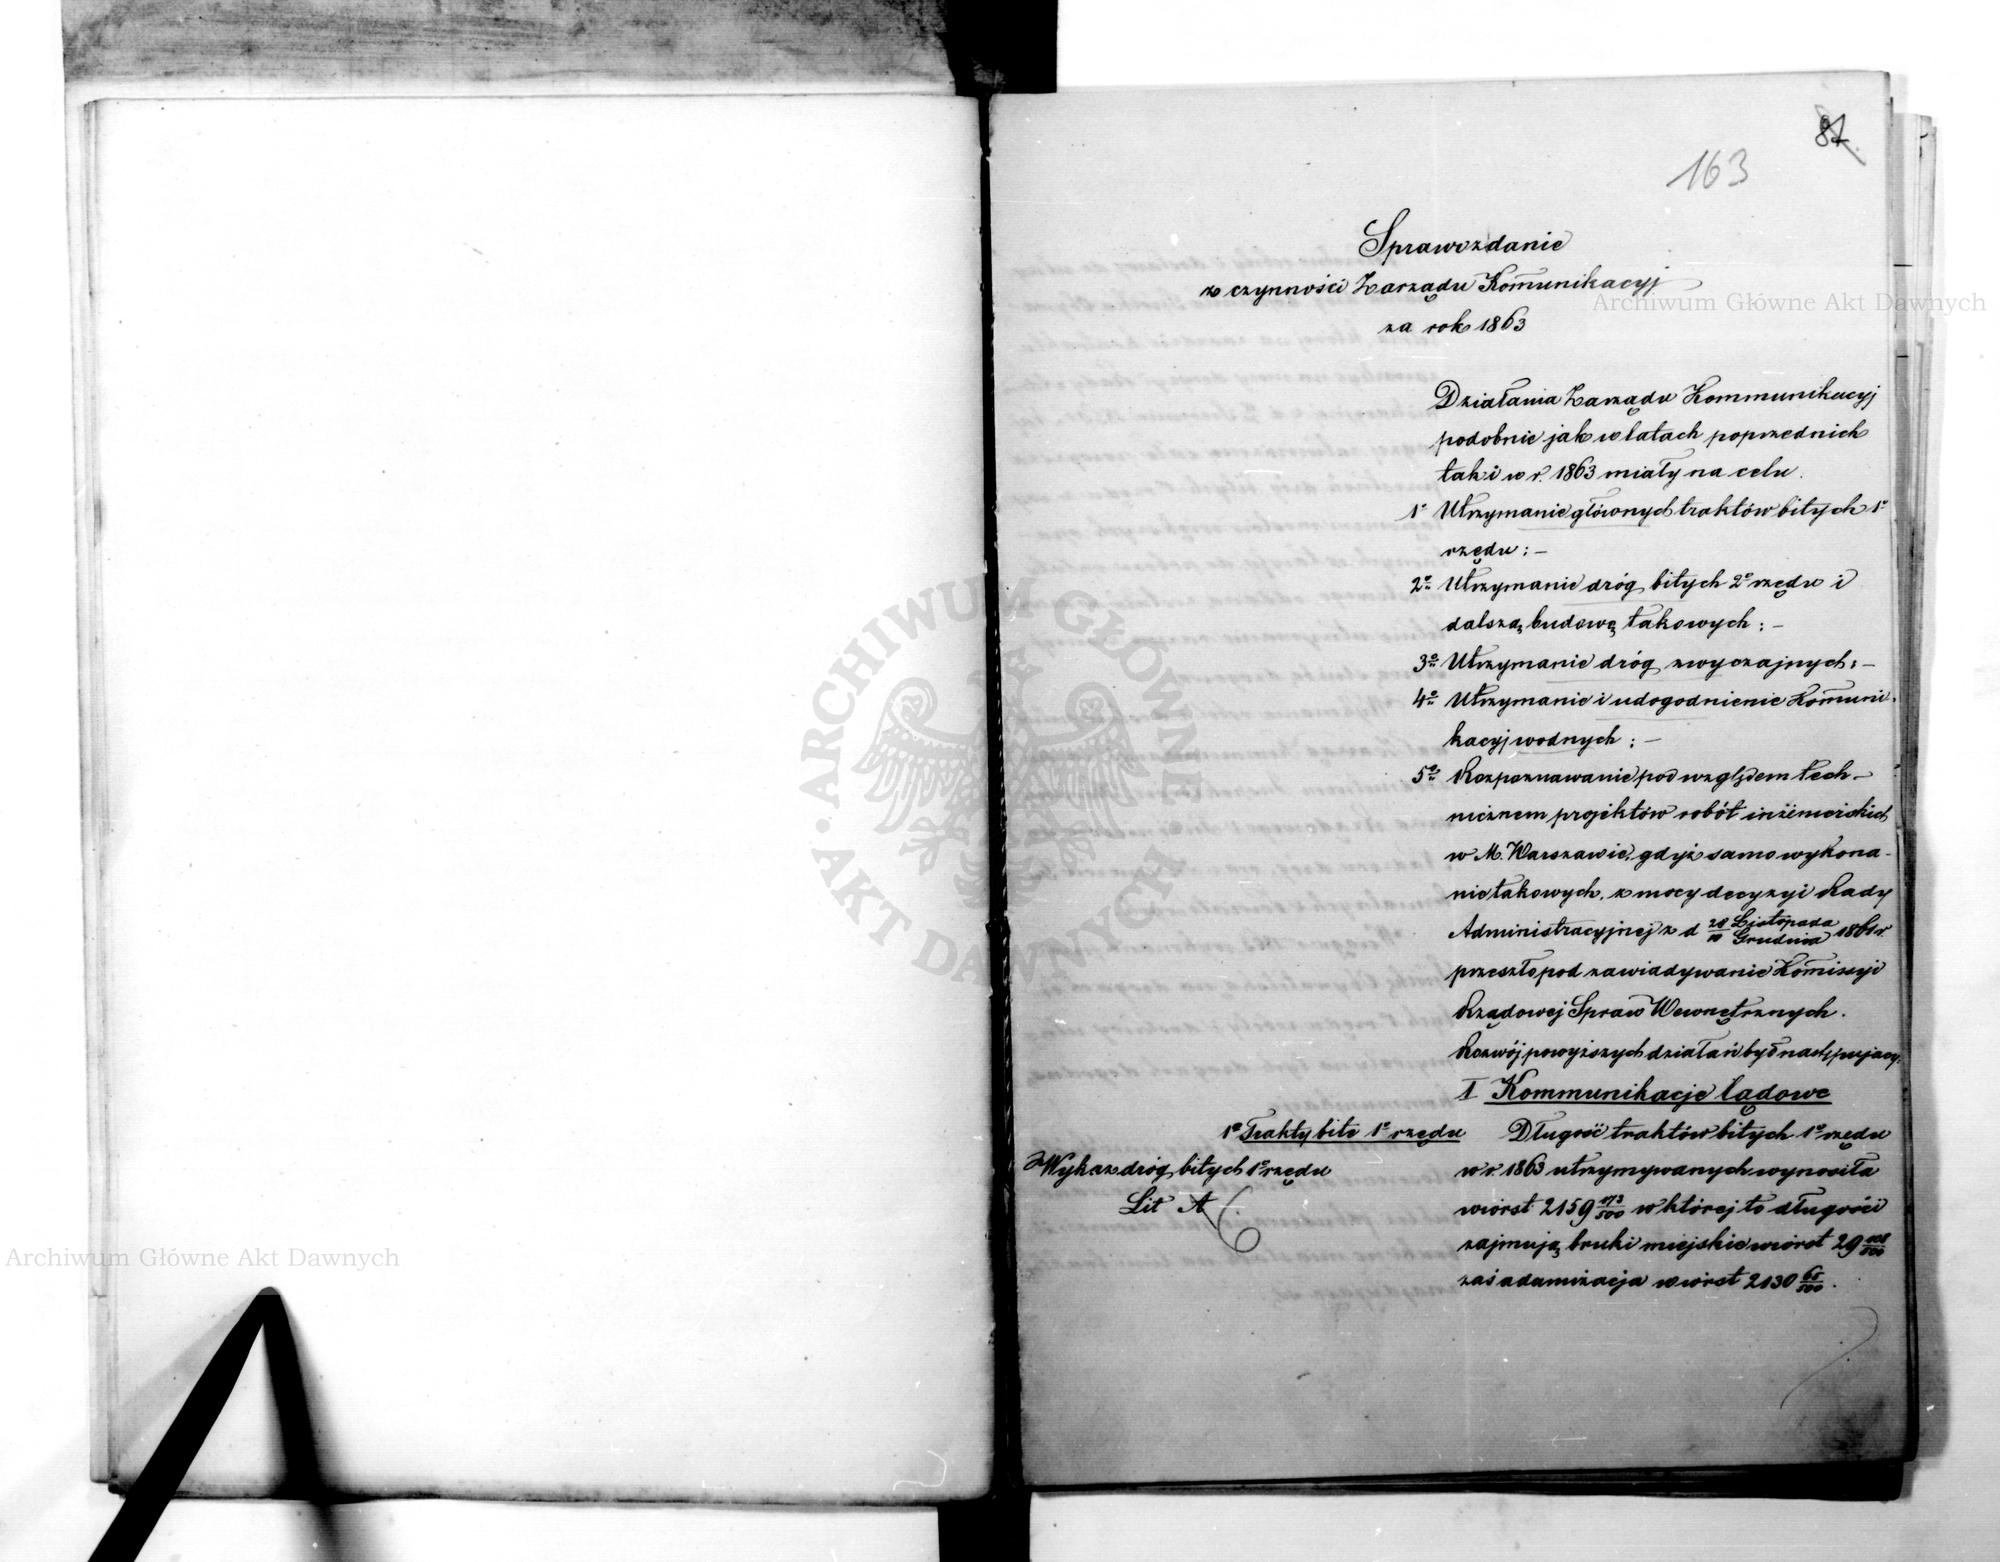 81
163
Sprawozdanie
z czynności Zarządu Kom̄unikacyj
za rok 1863
Działania Zarządu Kommunikacyj
podobnie jak w latach poprzednich
tak i w r. 1863 miały na celu.
1° Utrzymanie głównych traktów bitych 1°
rzędu: —
2° Utrzymanie dróg bitych 2° rzędu i
dalszą budowę takowych: —
3° Utrzymanie dróg zwyczajnych: —
4° Utrzymanie i udogodnienie Kom̄uni-
kacyj wodnych: —
5° Rozpoznawanie pod względem tech-
nicznem projektów robót inżenierskich
w M. Warszawie, gdyż samo wykona-
nie takowych, z mocy decyzyi Rady
Administracyjnej z d 28/10 Listopada/Grudnia 1861 r.
przeszło pod zawiadywanie Kom̄issyi
Rządowej Spraw Wewnętrznych.
Rozwój powyższych działań był następujący:
I Kommunikacje lądowe
1° Trakty bite 1° rzędu
Wykaz dróg bitych 1° rzędu
Lit A
Długość traktów bitych 1° rzędu
w r. 1863 utrzymywanych wynosiła
wiorst 2159 173/500 w której to długości
zajmują bruki miejskie wiorst 29 108/500
zaś adamizacja wiorst 2130 65/500.
Archiwum Główne Akt Dawnych
ARCHIWUM GŁÓWNE • AKT DAWNYCH •
Archiwum Główne Akt Dawnych